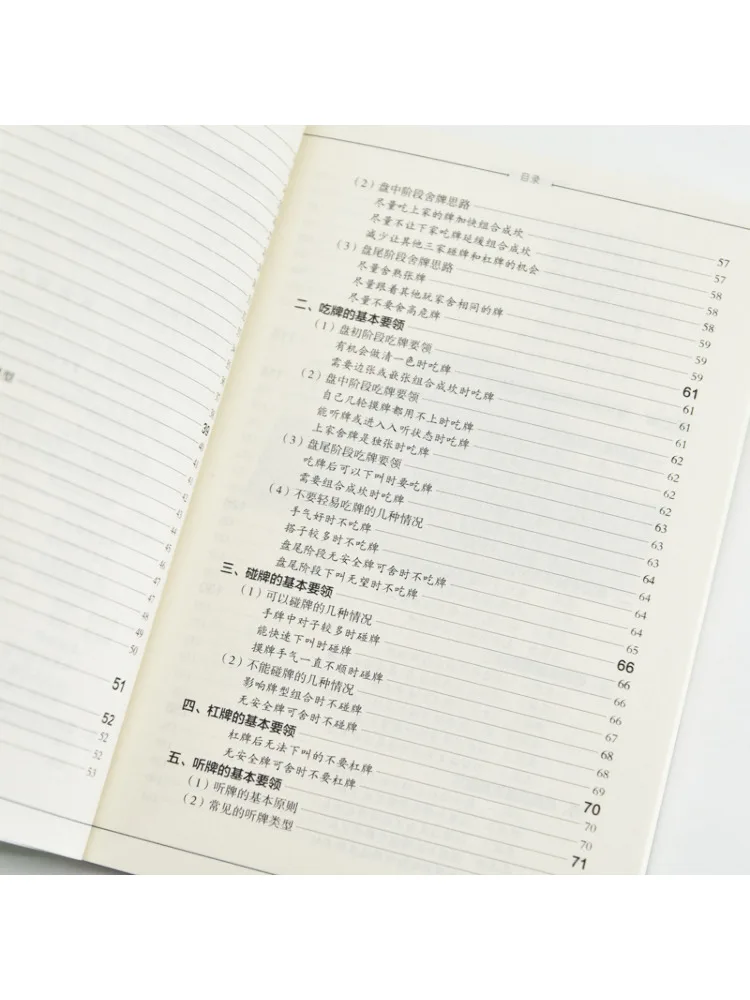 型
39
40
51
52
52
52
53
目录
（2）盘中阶段舍牌思路 57
尽量吃上家的牌加快组合成坎 57
尽量不让下家吃牌延缓组合成坎 58
减少让其他三家碰牌和杠牌的机会 58
（3）盘尾阶段舍牌思路 58
尽量舍熟张牌 59
尽量跟着其他玩家舍相同的牌 59
尽量不要舍高危牌 59
二、吃牌的基本要领 61
（1）盘初阶段吃牌要领 61
有机会做清一色时吃牌 61
需要边张或嵌张组合成坎时吃牌 61
（2）盘中阶段吃牌要领 62
自己几轮摸牌都用不上时吃牌 62
能听牌或进入入听状态时吃牌 62
上家舍牌是独张时吃牌 62
（3）盘尾阶段吃牌要领 63
吃牌后可以下叫时要吃牌 63
需要组合成坎时吃牌 63
（4）不要轻易吃牌的几种情况 64
手气好时不吃牌 64
搭子较多时不吃牌 64
盘尾阶段无安全牌可舍时不吃牌 64
盘尾阶段下叫无望时不吃牌 65
三、碰牌的基本要领 66
（1）可以碰牌的几种情况 66
手牌中对子较多时碰牌 66
能快速下叫时碰牌 66
摸牌手气一直不顺时碰牌 67
（2）不能碰牌的几种情况 68
影响牌型组合时不碰牌 68
无安全牌可舍时不碰牌 69
四、杠牌的基本要领 70
杠牌后无法下叫的不要杠牌 70
无安全牌可舍时不要杠牌 70
五、听牌的基本要领 71
（1）听牌的基本原则
（2）常见的听牌类型